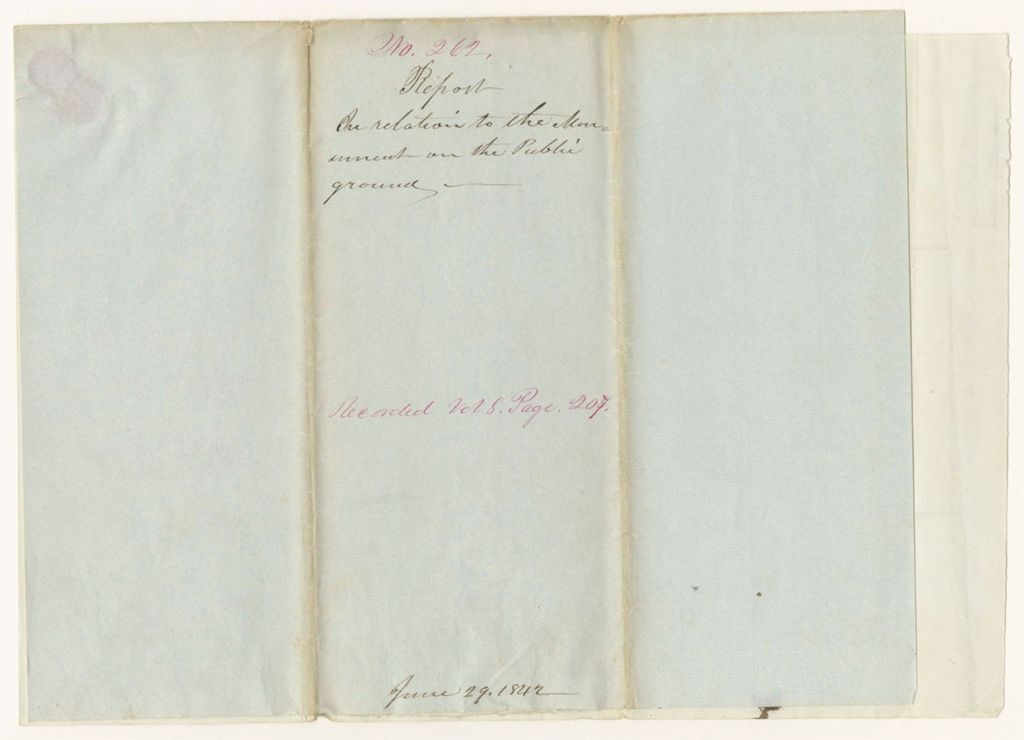 No. 262.
Report
In relation to the Mon=
ument on the Public
ground,
Recorded Vol 8. Page. 207.
June 29. 1842